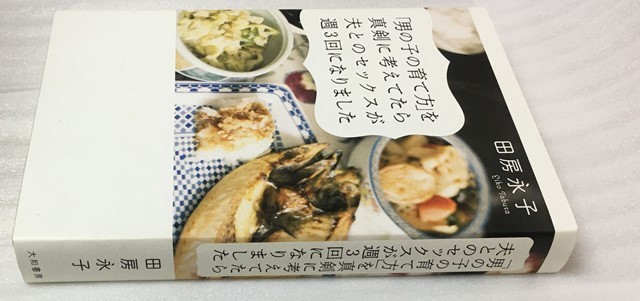 「男の子の育て方」を
真剣に考えてたら
夫とのセックスが
週3回になりました
田房永子
Eiko Tabusa
「男の子の育て方」を真剣に考えてたら
夫とのセックスが週3回になりました
田房永子
大和書房